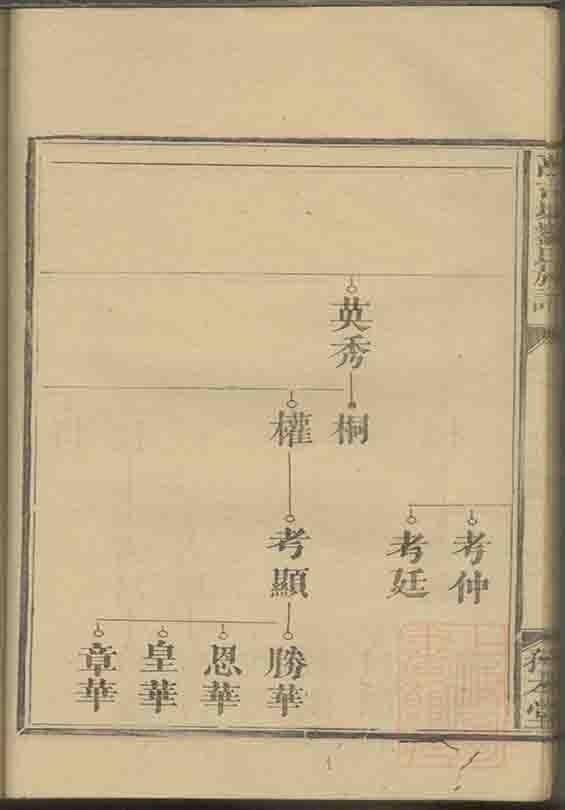 英秀
桐
權
考仲
考廷
考顯
勝華
恩華
皇華
章華